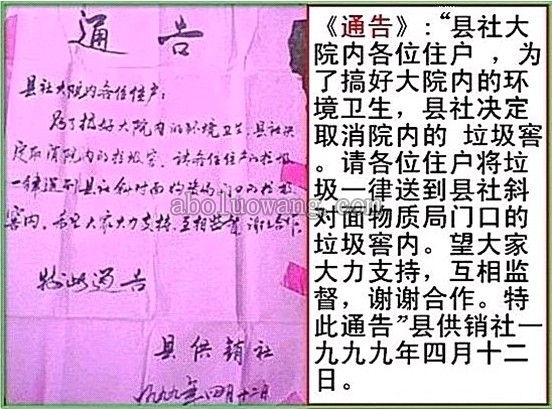 通告
县社大院内各位住户:
为了搞好大院内的环境卫生,县社决
定取消院内的垃圾窖。请各位住户将垃圾
一律送到县社斜对面物资局门口的垃圾
窖内。希望大家大力支持,互相监督,谢谢合作。
特此通告
县供销社
一九九九年四月十二日
aboluowang.com
《通告》:“县社大
院内各位住户 ,为
了搞好大院内的环
境卫生,县社决定
取消院内的 垃圾窖
.请各位住户将垃
圾一律送到县社斜
对面物质局门口的
垃圾窖内。望大家
大力支持,互相监
督,谢谢合作。特
此通告”县供销社一
九九九年四月十二
日。